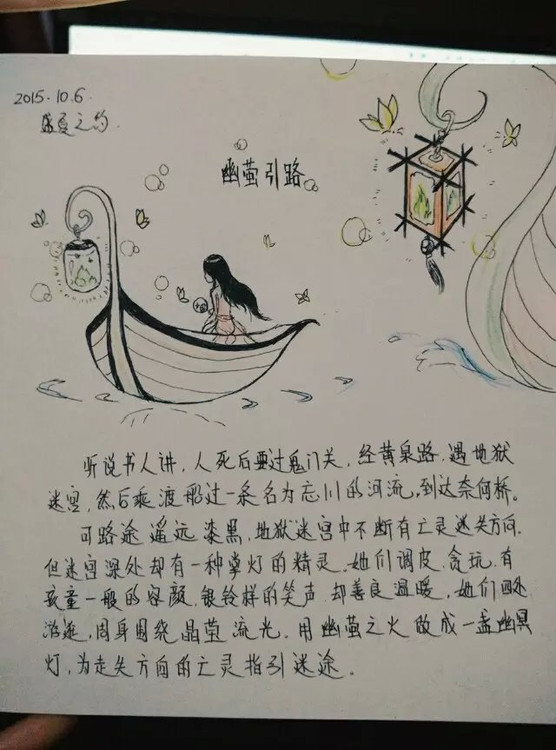 2015.10.6.
盛夏之约.
幽萤引路
听说书人讲,人死后要过鬼门关,经黄泉路.遇地狱
迷宫,然后乘渡船过一条名为忘川的河流,到达奈何桥。
可路途遥远漆黑,地狱迷宫中不断有亡灵迷失方向.
但迷宫深处却有一种掌灯的精灵.她们调皮.贪玩.有
孩童一般的容颜.银铃样的笑声.却善良温暖,她们四处
游逛,周身围绕晶莹流光.用幽萤之火做成一盏幽冥
灯,为走失方向的亡灵指引迷途。